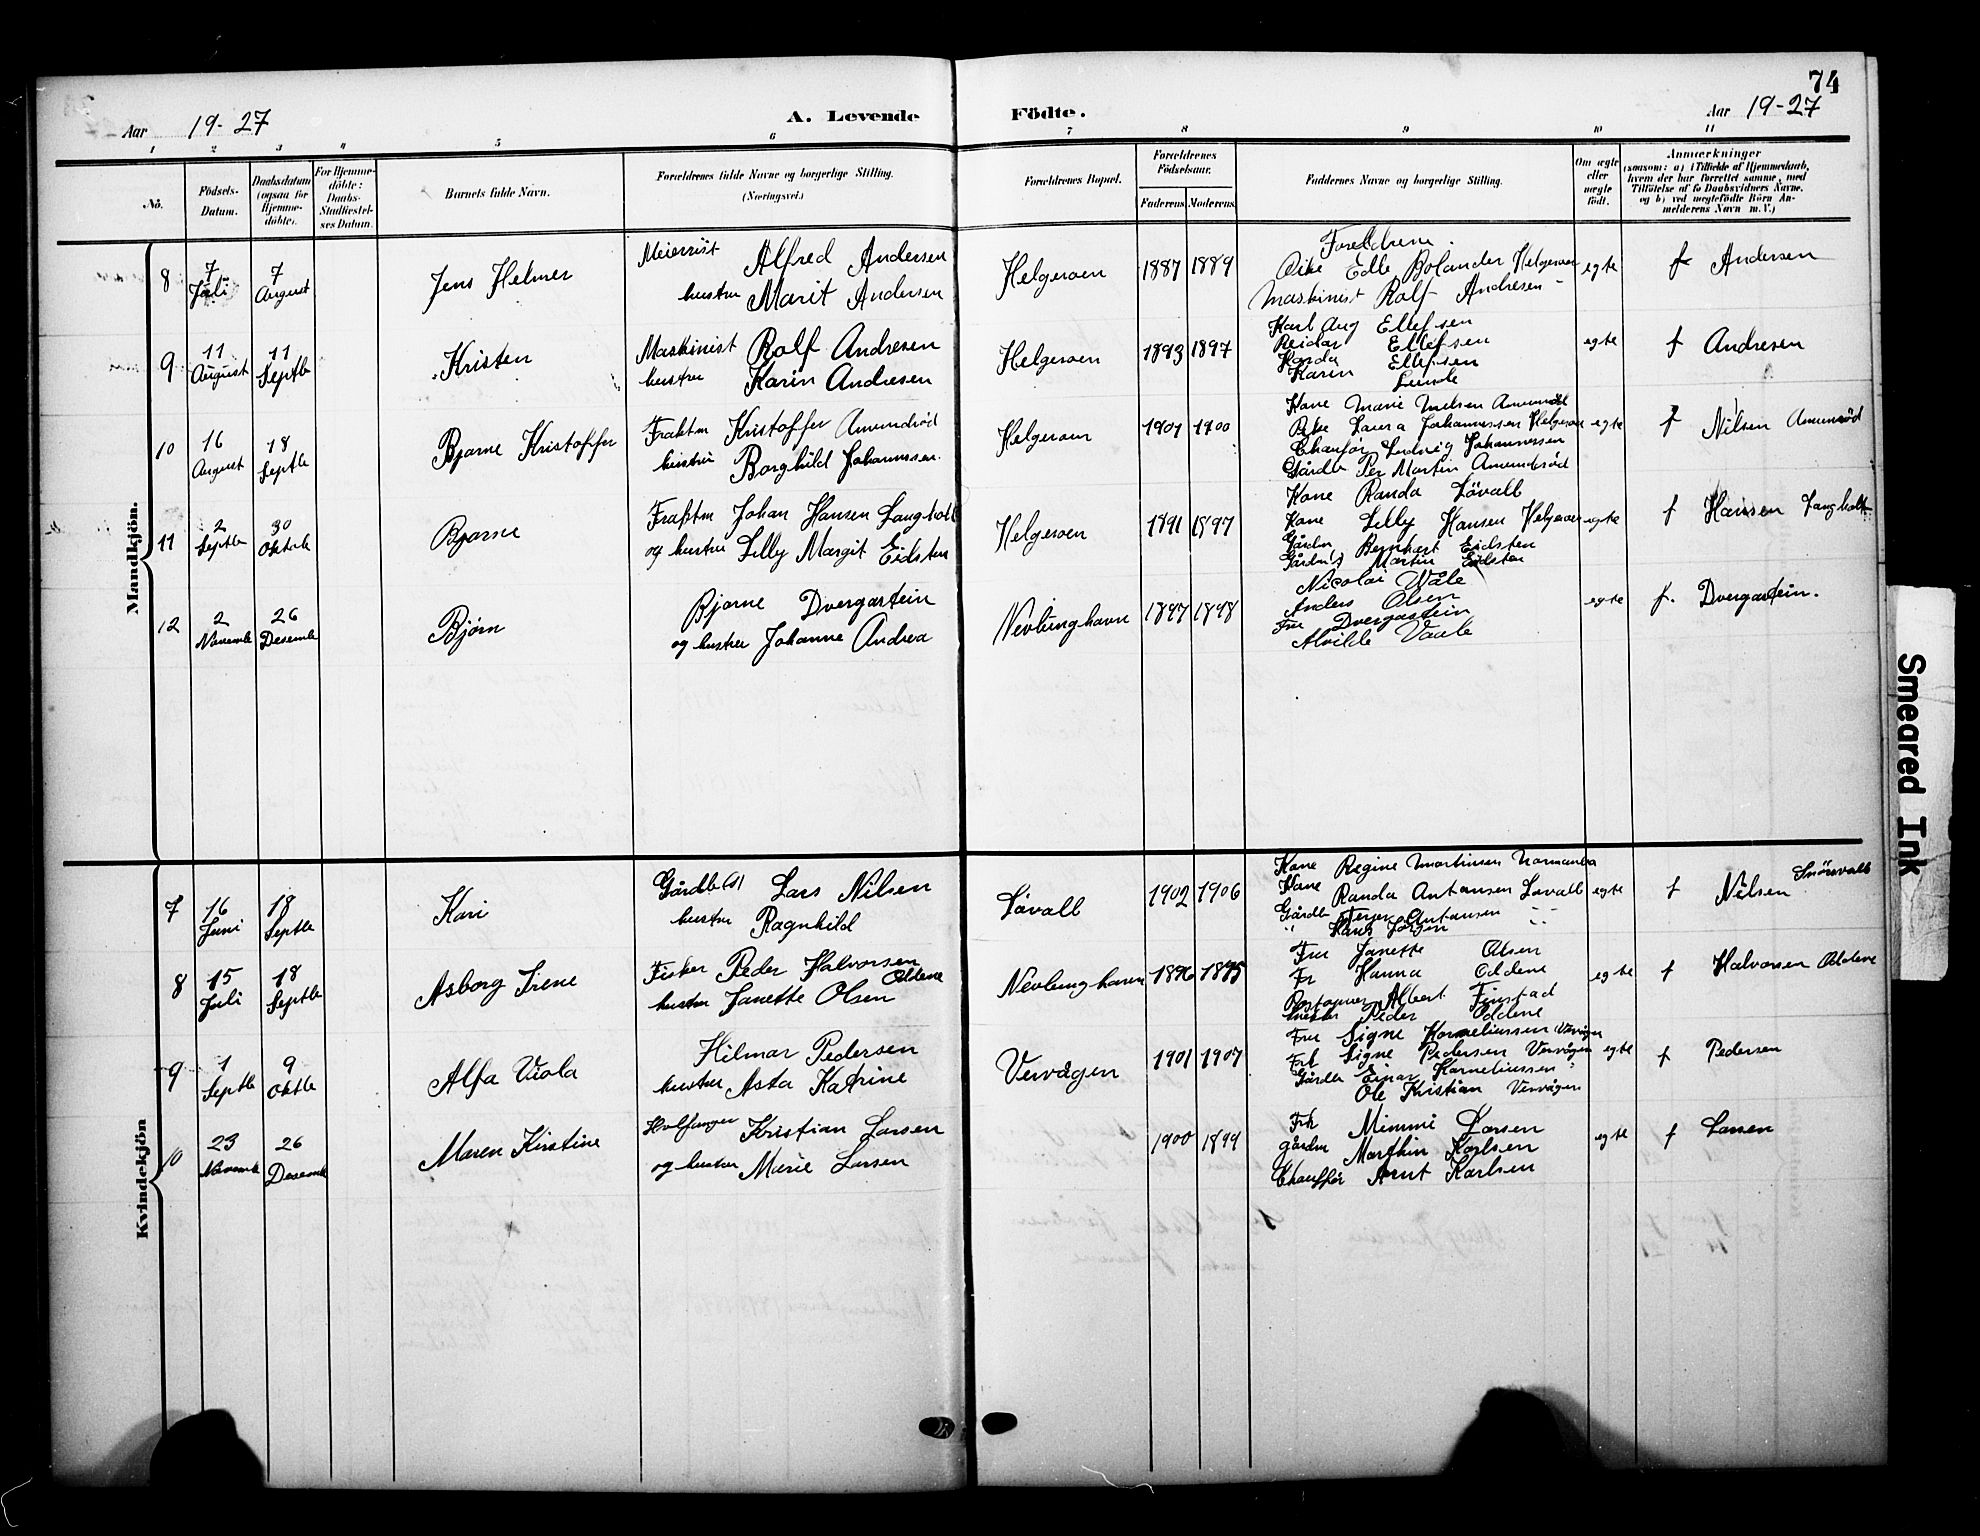 74
Aar 19-27
A. Levende Födte.
Aar 19-27
1 2 3 4 5 6 7 8 9 10 11
No.
Födsels-Datum.
Daabsdatum (ogsaa for Hjemmedöbte).
For Hjemmedöbte: Daabs-Stadfæstelses Datum.
Barnets fulde Navn.
Forældrenes fulde Navne og borgerlige Stilling. (Næringsvei.)
Forældrenes Bopæl.
Forældrenes Födselsaar.
Faderens Moderens.
Faddernes Navne og borgerlige Stilling.
Om ægte eller uægte födt.
Anmærkninger
(saasom: a) i Tilfælde af Hjemmedaab, hvem der har forrettet samme, med Tilföielse af to Daabsvidners Navne, og b) ved uægtefödte Börn Anmelderens Navn m.V.)
Mandkjön.
8 7 Juli 7 August Jens Helmer
Meierist Alfred Andersen
hustru Marit Andersen
Helgeroen 1887 1889
Foreldrene.
Edle Bolander Helgeroen
Maskinist Rolf Andresen -
egte f Andersen
9 11 August 11 Septb Kristen
Maskinist Rolf Andresen
hustru Karin Andresen
Helgeroen 1893 1897
Karl Aug Ellefsen
Reidar Ellefsen
Ellefsen
Karin Lunde
egte f Andresen
10 16 August 18 Septb Bjarne Kristoffer
Fraktm Kristoffer Amundröd
hustru Borghild Johannessen.
Helgeroen 1901 1900
Kone Marie Nielsen Amunröd
Pike Laura Johannessen Helgeroen
Chauför Ludvig Johannessen
Gårdb Per Martin Amundsröd
egte f Nilsen Amunröd
11 2 Septb 30 Oktob Bjarne
Fraktm Johan Hansen Langholt
og hustru Lilly Margit Eidsten
Helgeroen 1891 1897
Kone Randa Lövall
Kone Lilly Hansen Helgeroen
Gårdm Bernhart Eidsten
Gårdm Martin Eidsten
egte f Hansen Langholt
12 2 Novemb 26 Desemb Bjørn
Bjarne Dvergastein
og hustru Johanne Andrea
Nevlunghavn 1897 1898
Nicolai Wåle
Anders Olsen
Fru Dvergastein
Alvilde Vaale
egte f. Dvergastein.
Kvindekjön
7 16 Juni 18 Septb Kari
Gårdb Lars Nilsen
hustru Ragnhild
Lövall 1902 1906
Kone Regine Martinsen
Kone Randa Antonsen Løvall
Gårdb Terjer Antonsen
" Hans Jörgen
egte f Nilsen
8 15 Juli 18 Septb Asborg Irene
Fisker Peder Halvorsen Oddene
hustru Janette Olsen
Nevlunghavn 1896 1895
Fru Janette Olsen
Fr Hanna Oddene
Albert Finstad
Peder Oddene
egte f Halvorsen Oddene
9 1 Septb 9 Oktb Alfa Viola
Hilmar Pedersen
hustru Asta Katrine
Vervågen 1901 1907
Fru Signe Korneliussen Vervågen
Frk Signe Pedersen Vervågen
Gårdb Einar Korneliussen "
Ole Kristian Vervågen
egte f Pedersen
10 23 Novemb 26 Desemb Maren Kirstine
Hvalfanger Kristian Larsen
og hustru Marie Larsen
1900 1899
Frk Mimmi Larsen
Gårdm Marthin Karlsen
Chauffør Arnt Karlsen
egte f Larsen
Smeared Ink